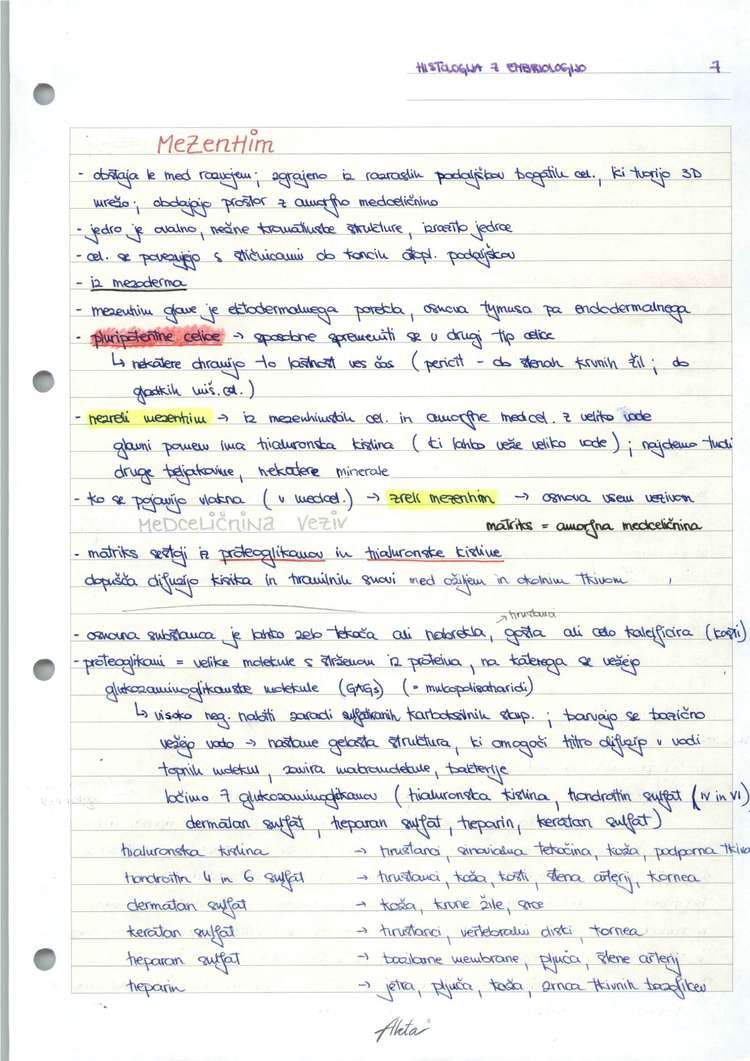 HISTOLOGIJA Z EMBRIOLOGIJO 7
MEZENHIM
- obstaja le med razvojem; zgrajeno iz razraslih podaljškov bogatih cel., ki tvorijo 3D
mrežo; obdajajo prostor z amorfno medceličnino
- jedro je ovalno, nežne kromatinske strukture, izrazito jedrce
- cel. se povezujejo s stičnicami ob koncih citopl. podaljškov
- iz mezoderma
- mezenhim glave je ektodermalnega porekla, osnova tymusa pa endodermalnega
- pluripotentne celice → sposobne spremeniti se v drugi tip celice
↳ nekatere ohranijo to lastnost ves čas (pericit - ob stenah krvnih žil; ob
gladkih miš. cel.)
- nezreli mezenhim → iz mezenhimskih cel. in amorfne medcel. z veliko vode
glavni pomen ima hialuronska kislina (ki lahko veže veliko vode); najdemo tudi
druge beljakovine, nekatere minerale
- ko se pojavijo vlakna (v medcel.) → zreli mezenhim → osnova vsem vezivom
MEDCELIČNINA VEZIV matriks = amorfna medceličnina
- matriks sestoji iz proteoglikanov in hialuronske kisline
dopušča difuzijo kisika in hranilnih snovi med ožiljem in okolnim tkivom
→ hrustanca
- osnovna substanca je lahko zelo tekoča ali nabrekla, gosta ali celo kalcificira (kosti)
- proteoglikani = velike molekule s strženom iz proteina, na katerega se vežejo
glukozaminoglikanske molekule (GAGs) (= mukopolisaharidi)
↳ visoko neg. nabiti zaradi sulfatiranih karboksilnih skup. ; barvajo se bazično
vežejo vodo → nastane gelasta struktura, ki omogoči hitro difuzijo v vodi
topnih molekul, zavira makromolekule, bakterije
ločimo 7 glukozaminoglikanov (hialuronska kislina, hondroitin sulfat (IV in VI)
dermatan sulfat, heparan sulfat, heparin, keratan sulfat)
hialuronska kislina → hrustanci, sinovialna tekočina, koža, podporna tkiva
hondroitin 4 in 6 sulfat → hrustanci, koža, kosti, stena arterij, kornea
dermatan sulfat → koža, krvne žile, srce
keratan sulfat → hrustanci, vertebralni diski, kornea
heparan sulfat → bazilarne membrane, pljuča, stene arterij
heparin → jetra, pljuča, koža, zrnca tkivnih bazofilcev
Akta